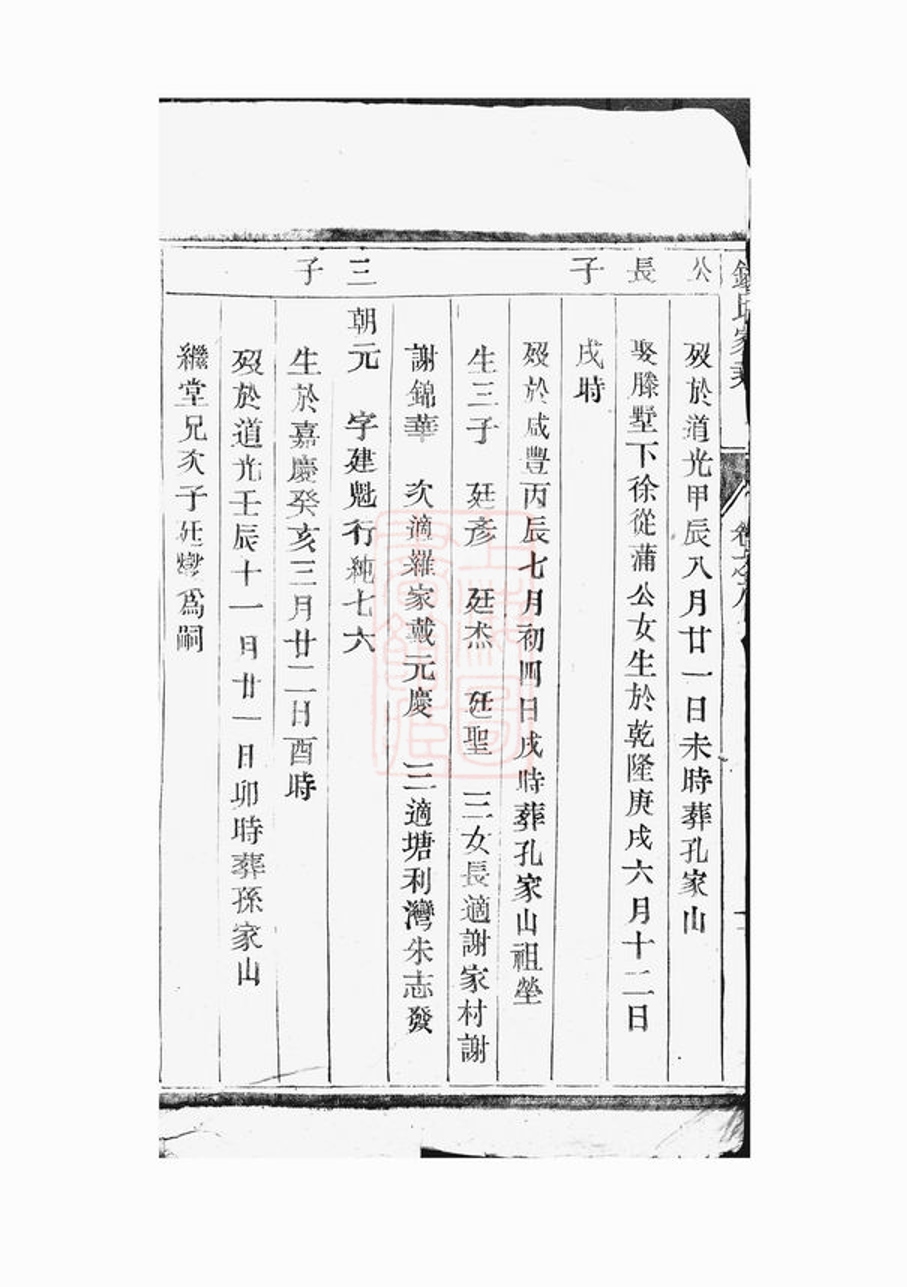 公長子
三子
歿於道光甲辰八月廿一日未時葬孔家山
娶滕墅下徐從蒲公女生於乾隆庚戌六月十二日
戌時
歿於咸豐丙辰七月初四日戌時葬孔家山祖塋
生三子 廷彥 廷杰 廷聖 三女長適謝家村謝
謝錦華 次適羅家戴元慶 三適塘利灣朱志發
朝元 字建魁行純七六
生於嘉慶癸亥三月廿二日酉時
歿於道光壬辰十一月廿一日卯時葬孫家山
繼堂兄次子廷為嗣